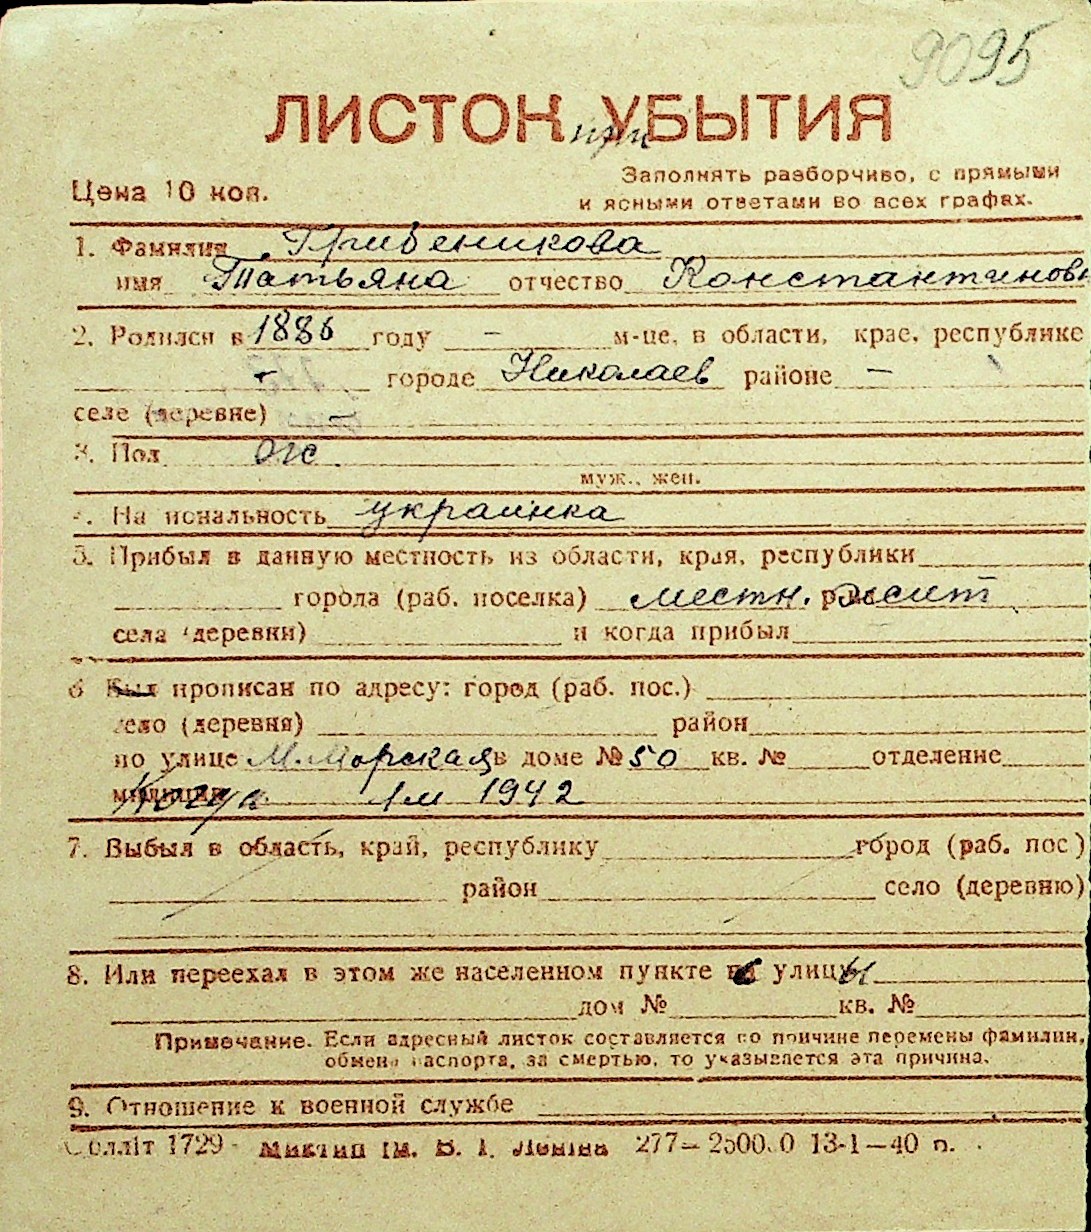 9095
ЛИСТОК при УБЫТИЯ
Цена 10 коп.
Заполнять разборчиво, с прямыми
и ясными ответами во всех графах.
1. Фамилия Грибеникова
имя Татьяна отчество Константиновн
2. Родился в 1886 году — м-це, в области, крае, республике
— городе Николаев районе —
селе (деревне) —
3. Пол ж.
муж., жен.
4. На иональность украинка
5. Прибыл в данную местность из области, края, республики
города (раб. поселка) местн. жит
села (деревни) и когда прибыл
6 Был прописан по адресу: город (раб. пос.)
село (деревня) район
по улице М. Морская в доме № 50 кв. № отделение
милиции 1м 1942
7. Выбыл в область, край, республику город (раб. пос)
район село (деревню)
8. Или переехал в этом же населенном пункте с улицы
дом № кв. №
Примечание. Если адресный листок составляется по причине перемены фамилии,
обмена паспорта, за смертью, то указывается эта причина.
9. Отношение к военной службе
Облліт 1729 Миктип ім. В. І. Леніна 277— 25000 13-1—40 п.